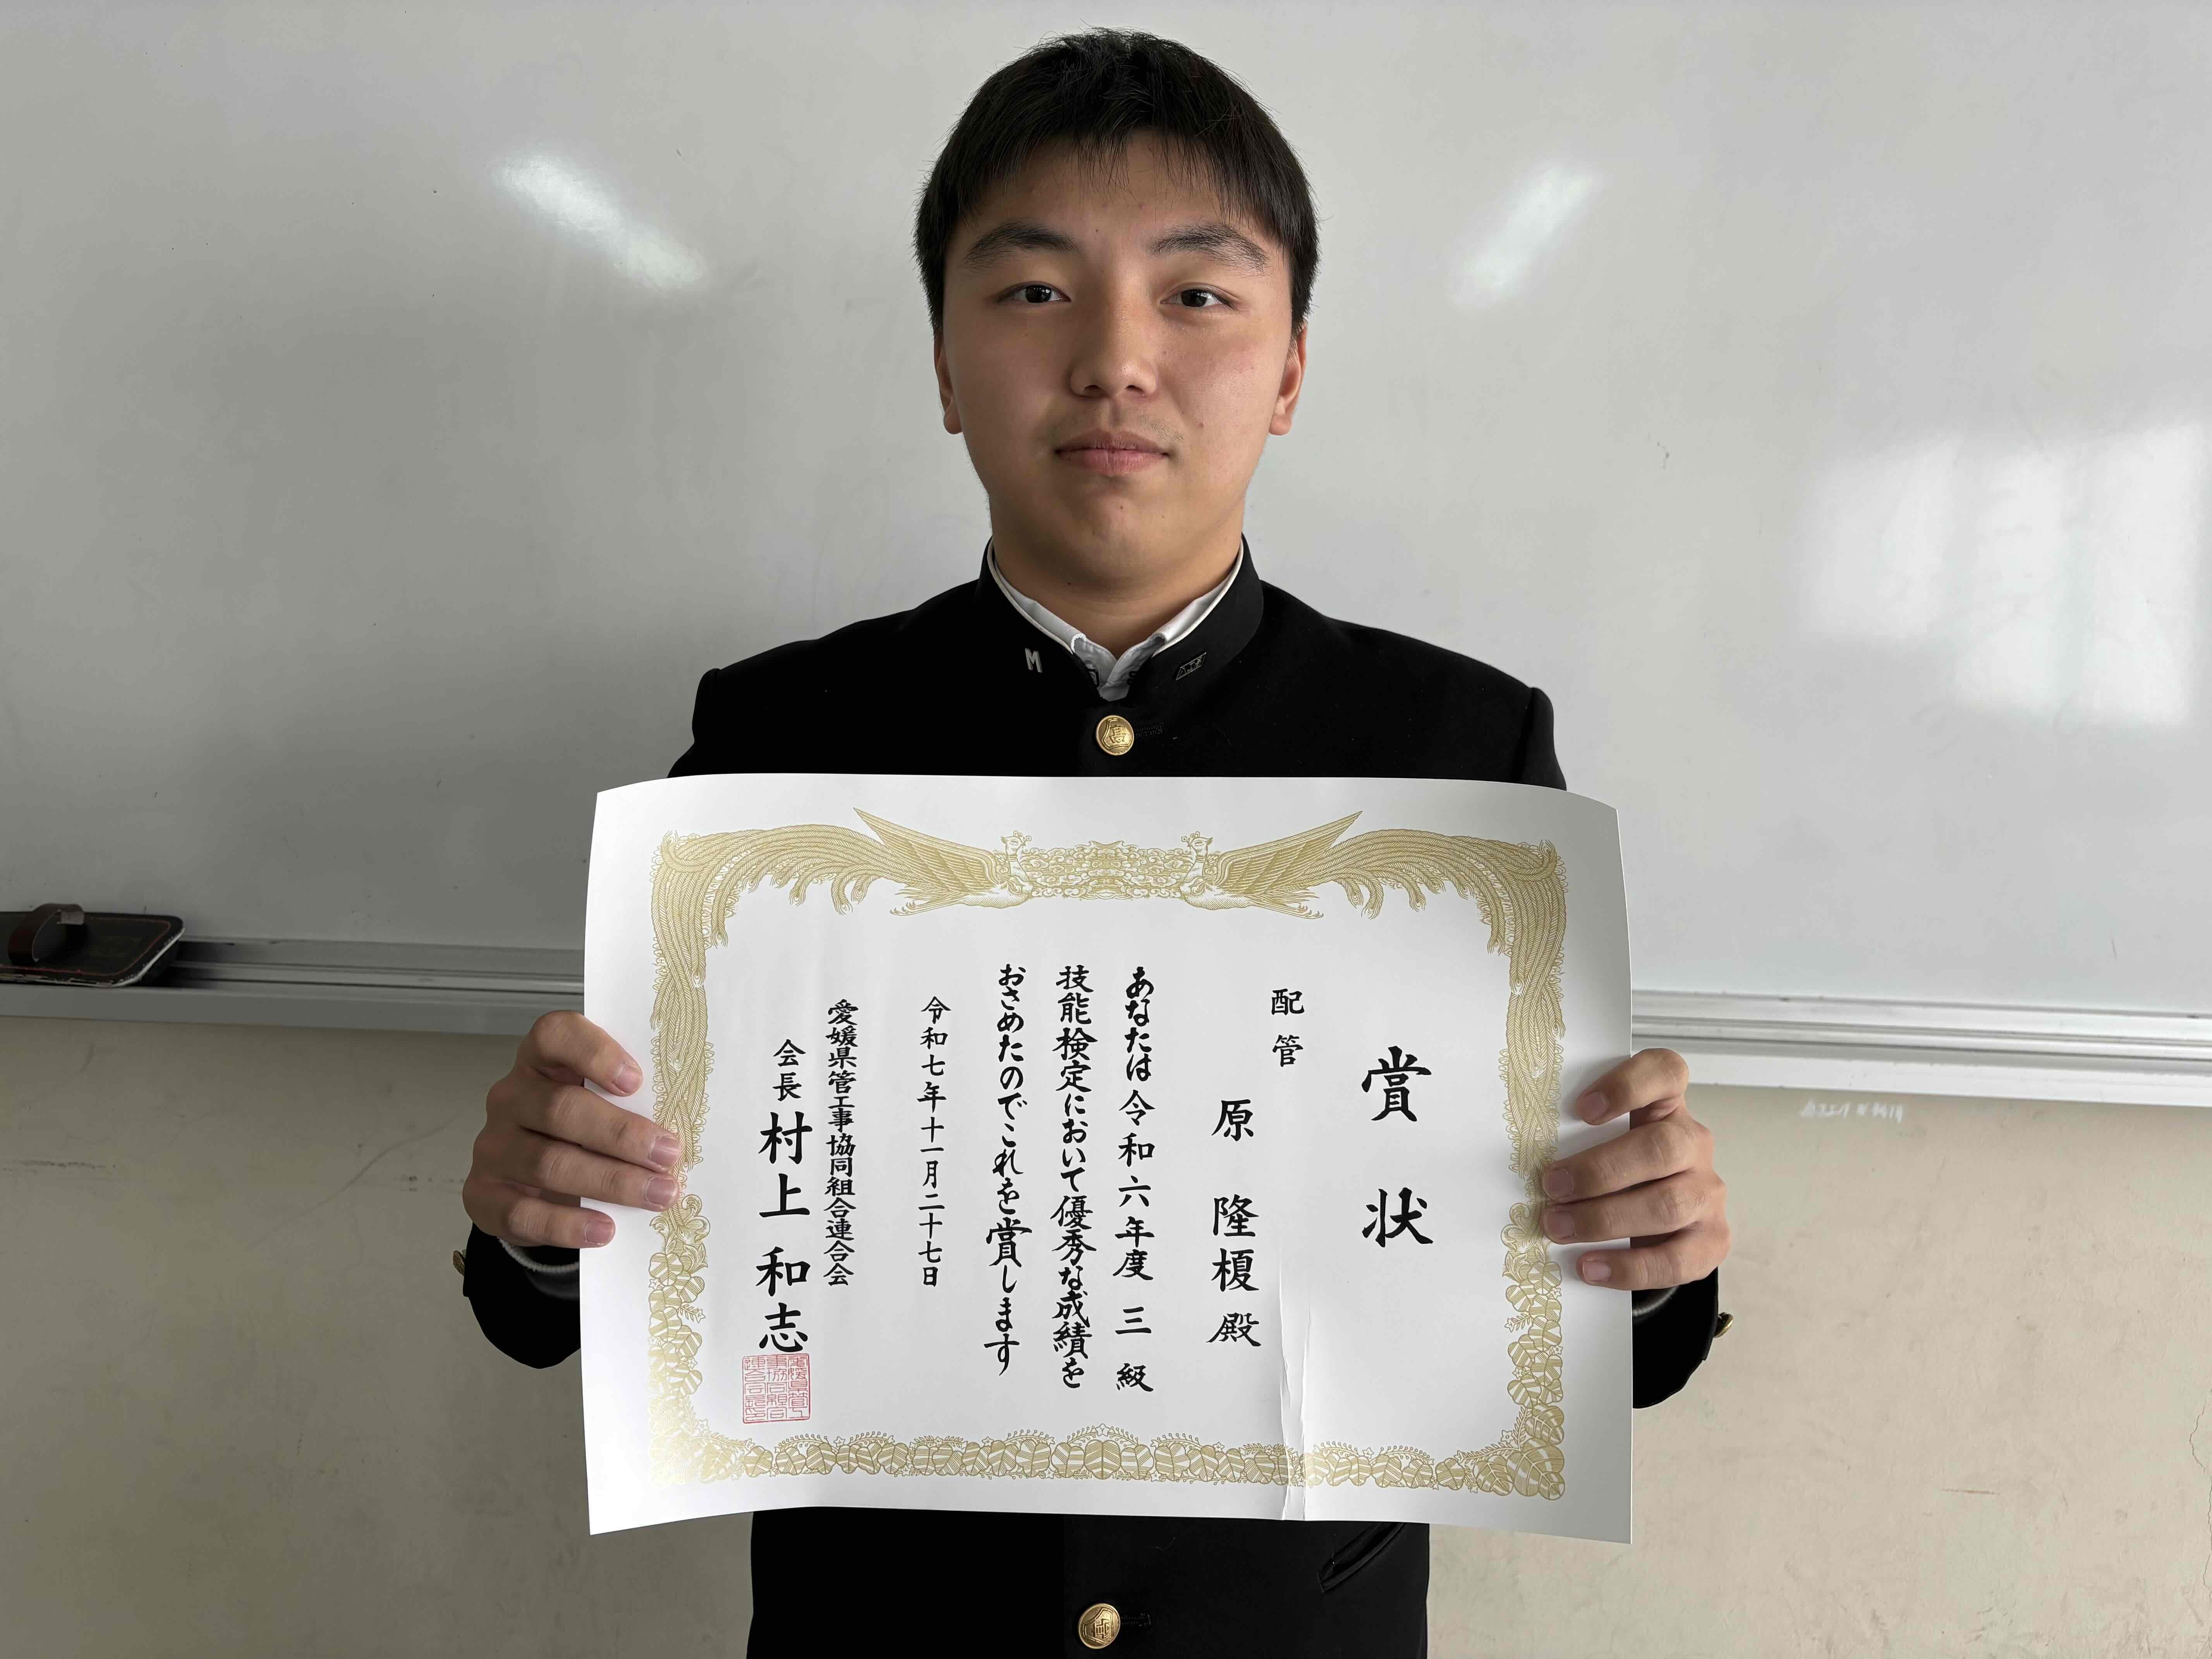 賞状
配管
原 隆榎 殿
あなたは令和六年度 三 級
技能検定において優秀な成績を
おさめたのでこれを賞します
令和七年十一月二十七日
愛媛県管工事協同組合連合会
会長 村上 和志
M